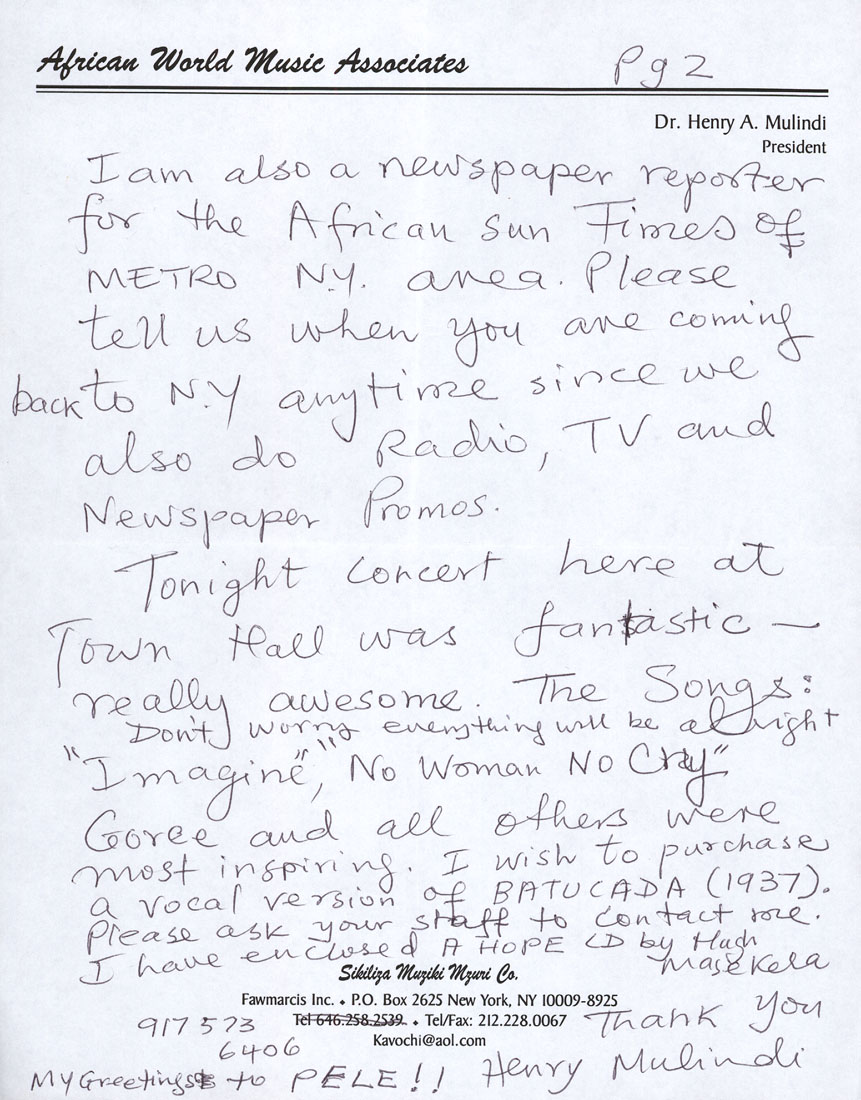 African World Music Associates
Pg 2
Dr. Henry A. Mulindi
President
I am also a newspaper reporter
for the African Sun Times of
METRO N.Y. area. Please
tell us when you are coming
back to N.Y anytime since we
also do Radio, TV and
Newspaper Promos.
Tonight concert here at
Town Hall was fantastic —
really awesome. The Songs:
Don't worry everything will be alright
"Imagine", "No Woman No Cry"
Goree and all others were
most inspiring. I wish to purchase
a vocal version of BATUCADA (1937).
Please ask your staff to contact me.
I have enclosed A HOPE CD by Hugh
Masekela
Sikiliza Muziki Mzuri Co.
Fawmarcis Inc. ⬥ P.O. Box 2625 New York, NY 10009-8925
Tel 646.258.2539 ⬥ Tel/Fax: 212.228.0067
Kavochi@aol.com
917 573
6406
Thank you
Henry Mulindi
My Greetings to PELE!!